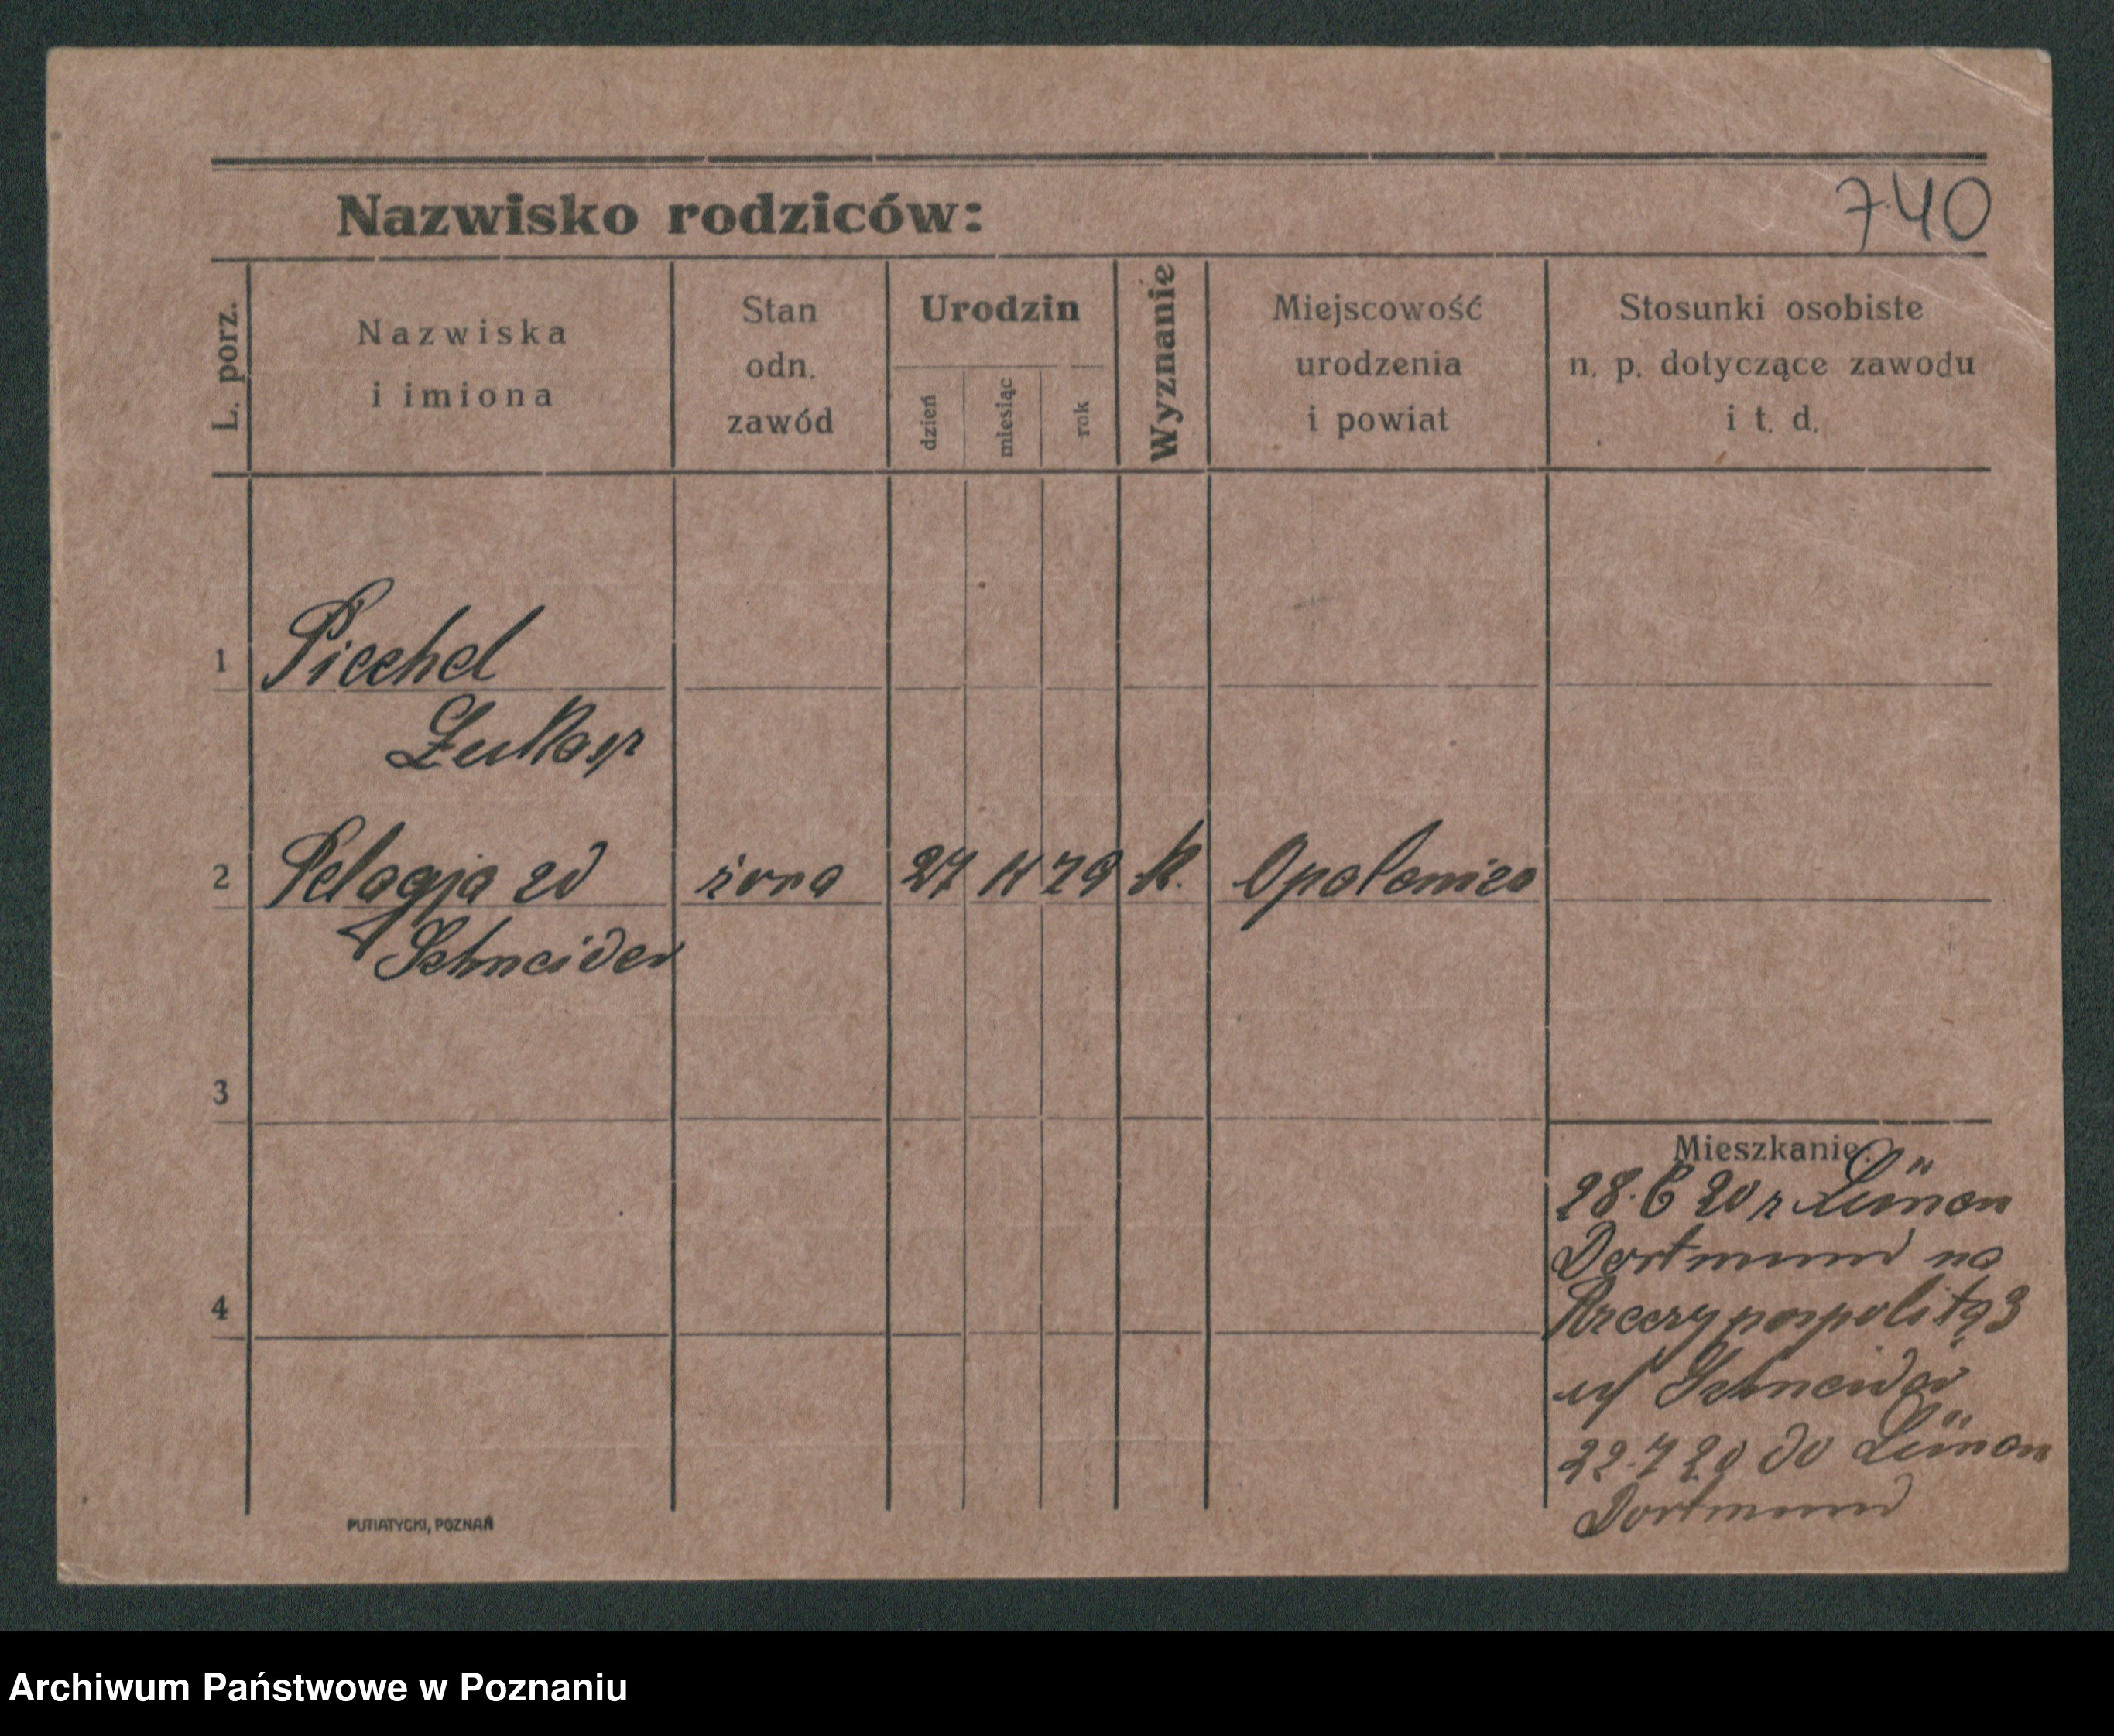 Nazwisko rodziców:
740
L. porz.
Nazwiska
i imiona
Stan
odn.
zawód
Urodzin
dzień
miesiąc
rok
Wyznanie
Miejscowość
urodzenia
i powiat
Stosunki osobiste
n. p. dotyczące zawodu
i t. d.
1 Piechel
Łukasz
2 Pelagja zd żona 27 79 k. Opalenica
Schneider
3
4
Mieszkanie:
28.6 20 z Lünen
Dortmund na
Rzeczypospolitą 3
u/ Schneider
22.7 20 do Lünen
Dortmund
PUTIATYCKI, POZNAŃ
Archiwum Państwowe w Poznaniu